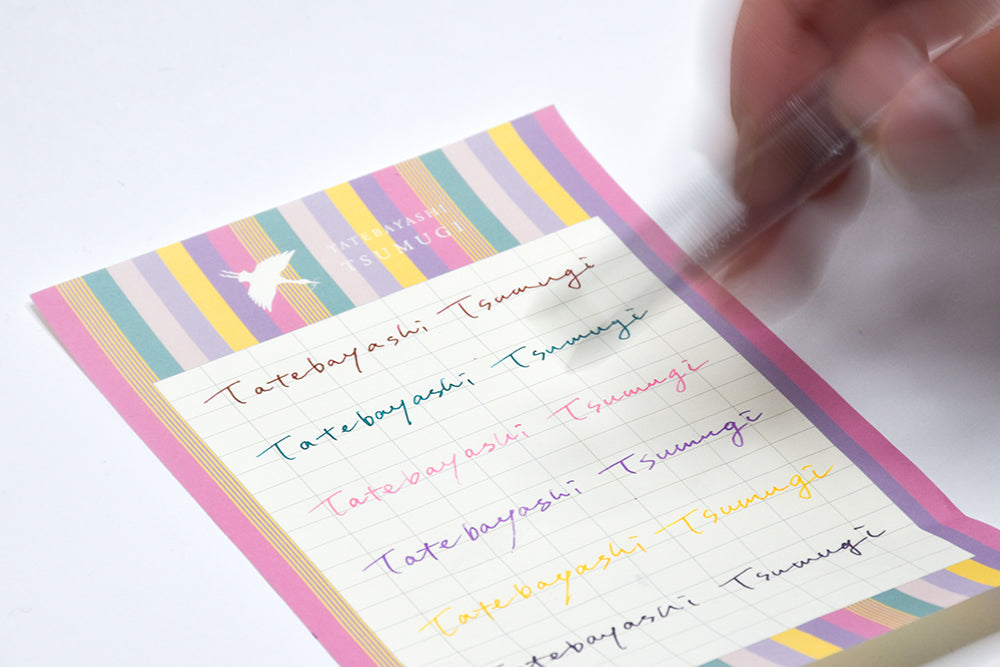 TATEBAYASHI
TSUMUGI
Tatebayashi Tsumugi
Tatebayashi Tsumugi
Tatebayashi Tsumugi
Tatebayashi Tsumugi
Tatebayashi Tsumugi
Tatebayashi Tsumugi